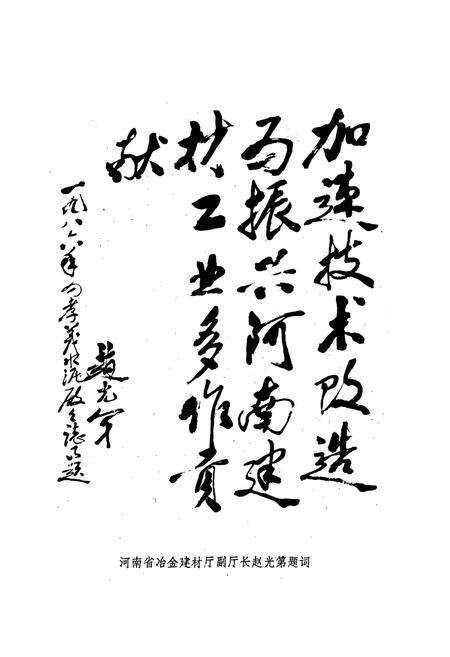 加速技术改造
为振兴河南建
材工业多作贡
献
赵光第
一九八六年为孝义水泥厂厂志题
河南省冶金建材厅副厅长赵光第题词